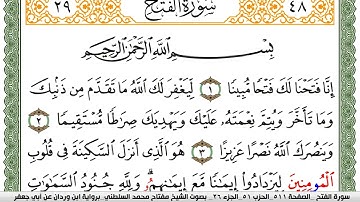 ٢٩ سُورَةُ الفَتْحِ ٤٨
بِسْمِ اللَّهِ الرَّحْمَٰنِ الرَّحِيمِ
إِنَّا فَتَحْنَا لَكَ فَتْحًا مُّبِينًا ١ لِّيَغْفِرَ لَكَ اللَّهُ مَا تَقَدَّمَ مِن ذَنۢبِكَ
وَمَا تَأَخَّرَ وَيُتِمَّ نِعْمَتَهُۥ عَلَيْكَ وَيَهْدِيَكَ صِرَٰطًا مُّسْتَقِيمًا ٢
وَيَنصُرَكَ اللَّهُ نَصْرًا عَزِيزًا ٣ هُوَ الَّذِي أَنزَلَ السَّكِينَةَ فِي قُلُوبِ
الْمُومِنِينَ لِيَزْدَادُوا إِيمَٰنًا مَّعَ إِيمَٰنِهِمُۥ وَلِلَّهِ جُنُودُ السَّمَٰوَٰتِ
سورة الفتح الصفحة ٥١١ الحزب ٥١ الجزء ٢٦ - بصوت الشيخ مفتاح محمد السلطني برواية ابن وردان عن أبي جعفر